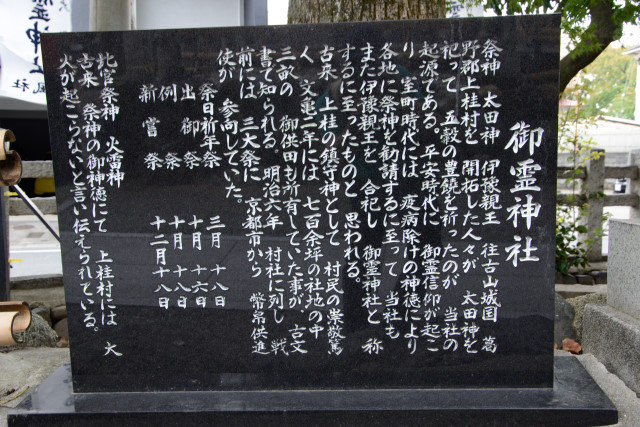 御霊神社
祭神 太田神 伊豫親王 往古山城国 葛
野郡上桂村を 開拓した人々が 太田神を
祀って 五穀の豊饒を祈ったのが 当社の
起源である。平安時代に 御霊信仰が起こ
り、室町時代には 疫病除けの神徳により
各地に祭神を勧請するに至って 当社も
また伊豫親王を 合祀し 御霊神社と 称
するに至ったものと 思われる。
古来 上桂の鎮守神として 村民の崇敬篤
く 文亀二年には 七百余坪の社地の中
三畝の 御供田も所有していた事が、古文
書で知られる。明治六年 村社に列し 戦
前には 三大祭に 京都市から 幣帛供進
使が 参向していた。
祭日祈年祭 三月 十八日
出御祭 十月 十六日
例祭 十月 十八日
新嘗祭 十二月十八日
比官祭神 火雷神
古来 祭神の御神徳にて 上桂村には 大
火が起こらないと言い伝えられている。
御霊神社